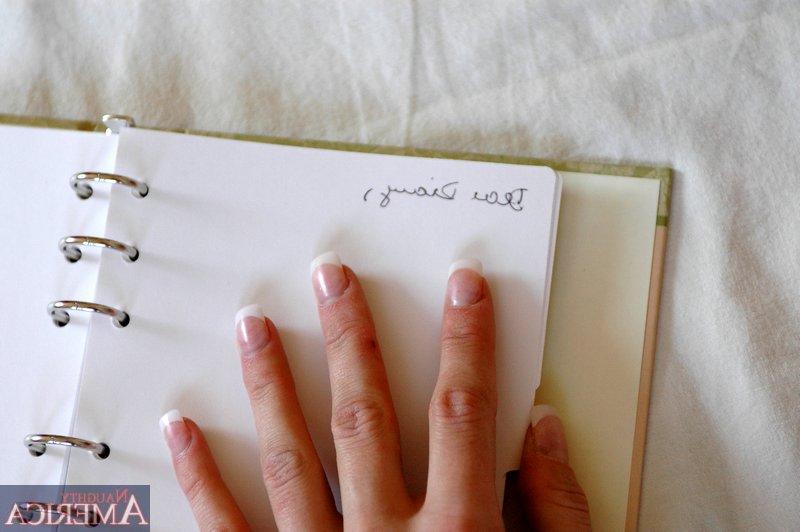 Dear Diary,
NAUGHTY
AMERICA